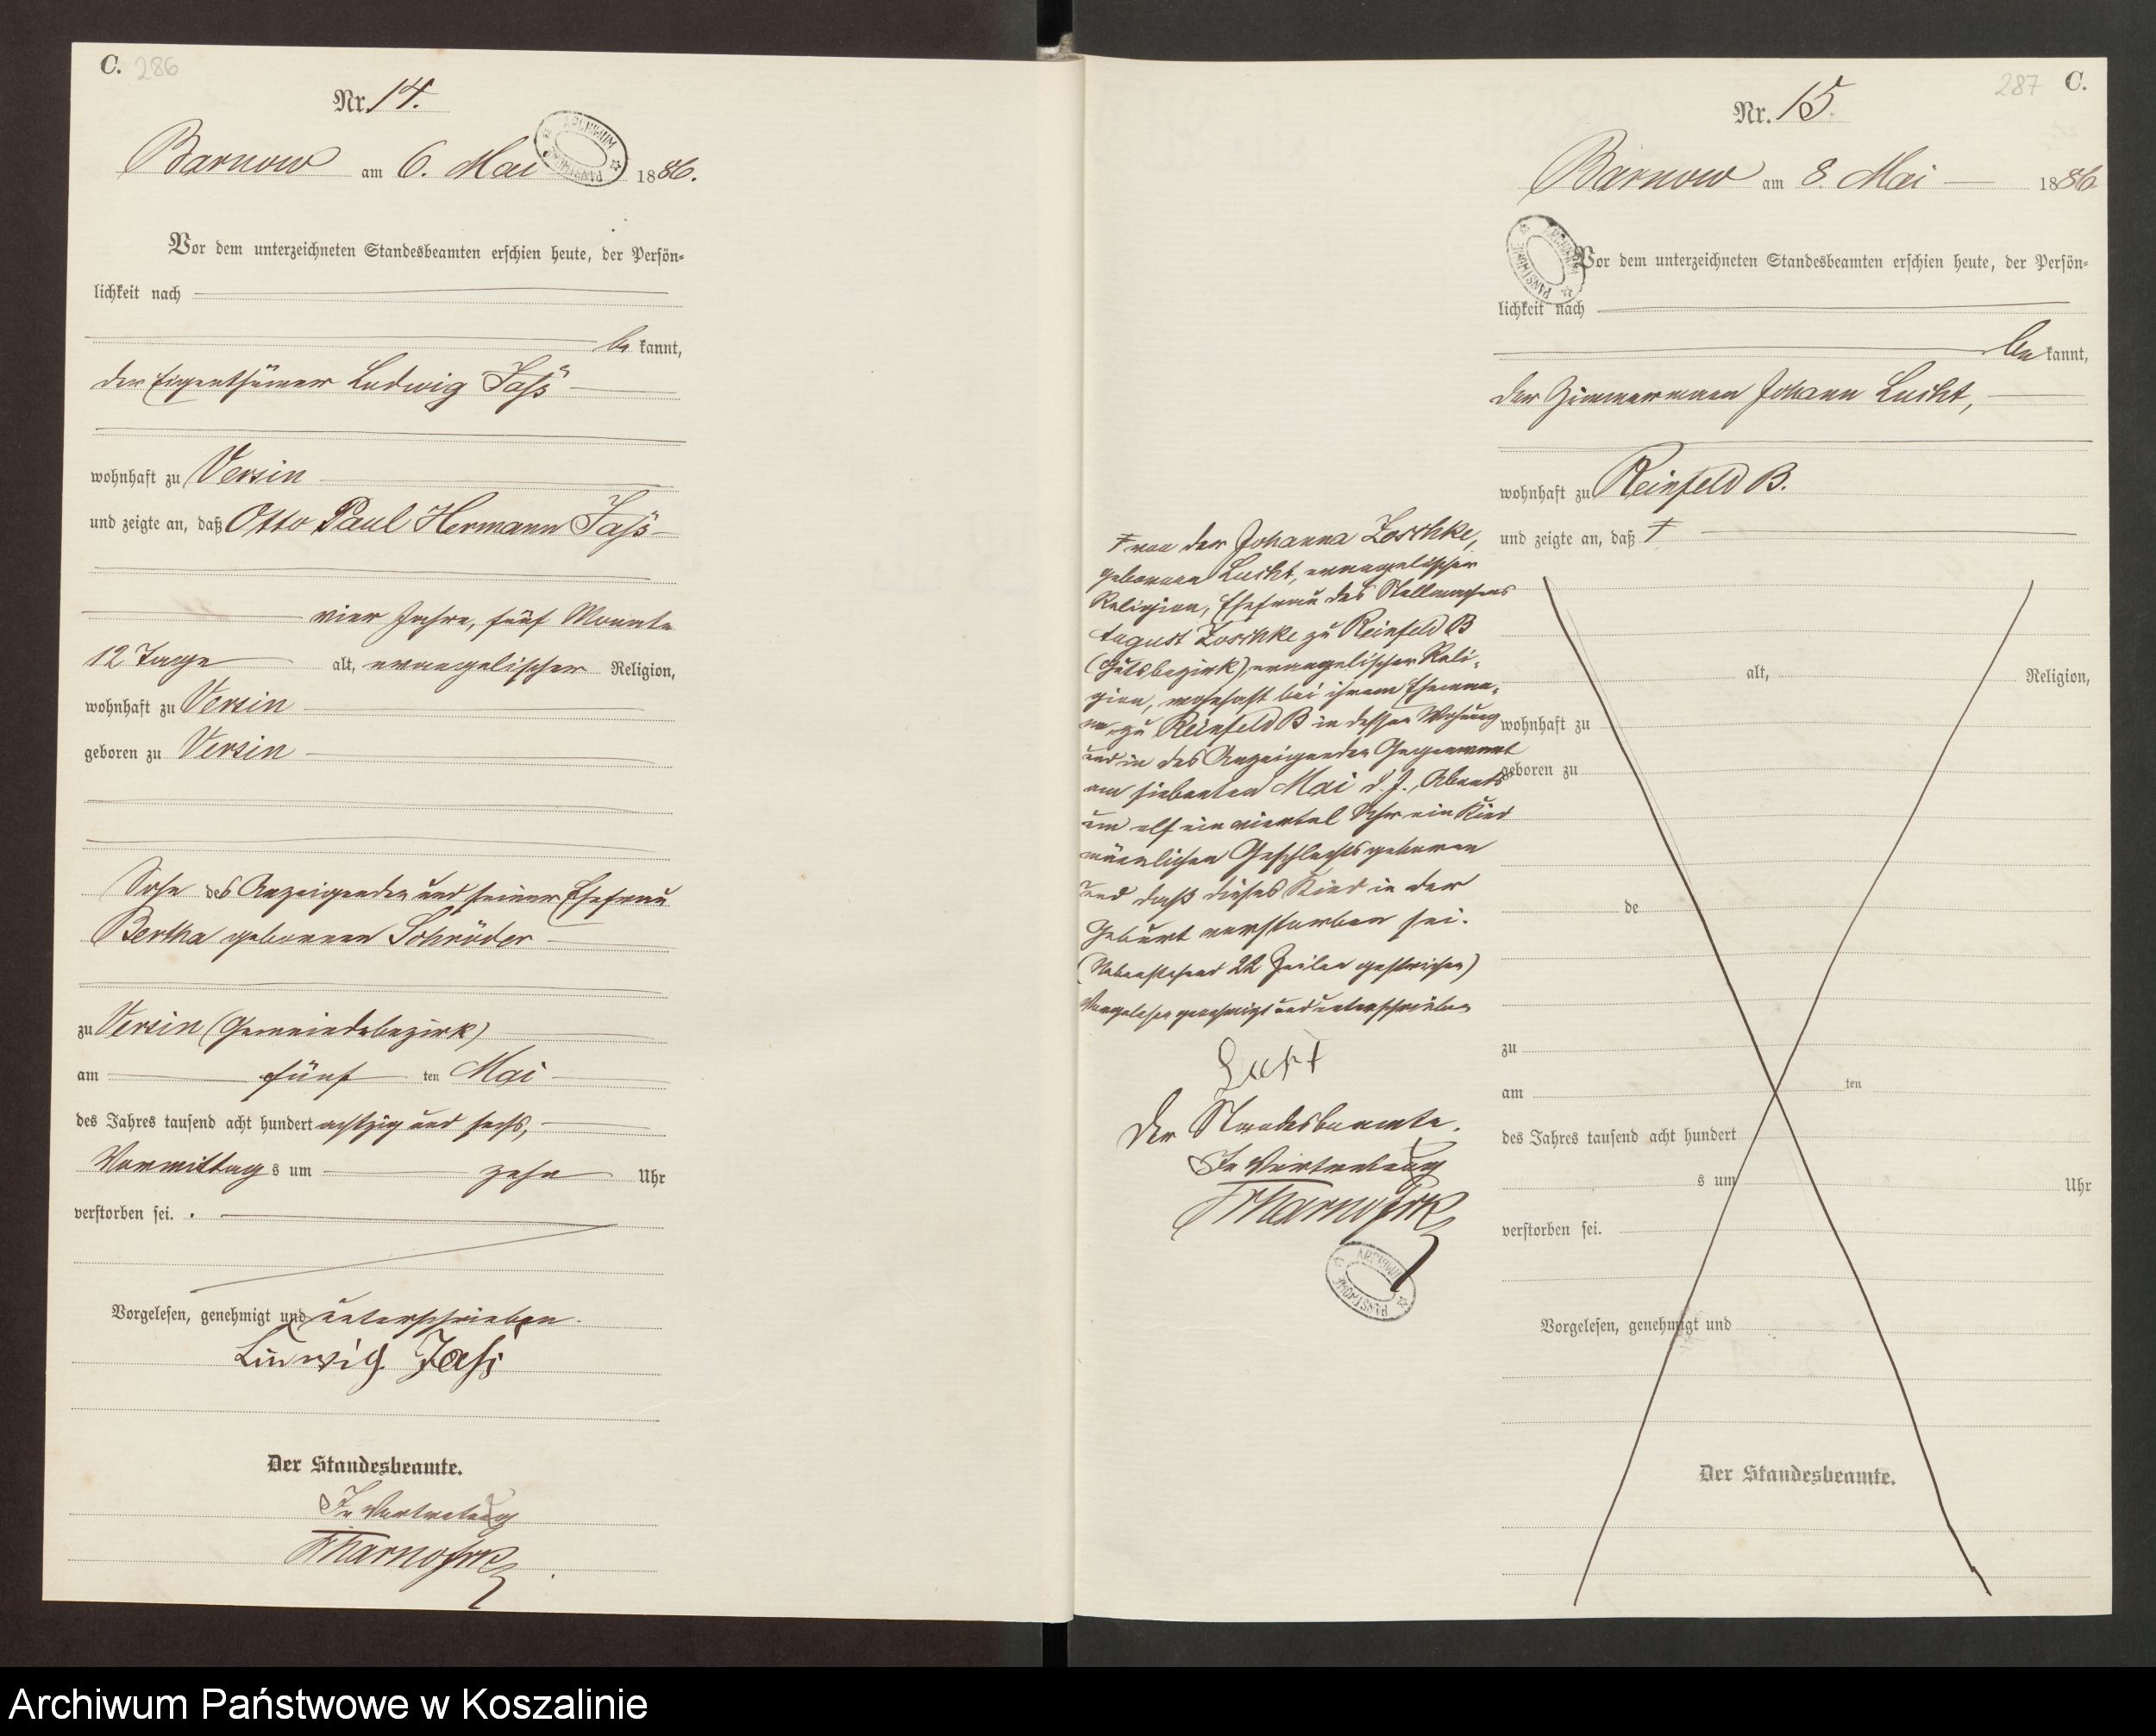 C. 286
Nr. 14.
Barnow am 6. Mai 1886.
ARCHIWUM PAŃSTWOWE
Vor dem unterzeichneten Standesbeamten erschien heute, der Persön-
lichkeit nach
be kannt,
der Eigenthümer Ludwig Jaß
wohnhaft zu Versin
und zeigte an, daß Otto Paul Hermann Jaß
vier Jahre, fünf Monate
12 Tage alt, evangelischer Religion,
wohnhaft zu Versin
geboren zu Versin
Sohn des Anzeigenden und seiner Ehefrau
Bertha geborenen Schröder
zu Versin (Gemeindebezirk)
am fünf ten Mai
des Jahres tausend acht hundert achtzig und sechs,
Vormittag s um zehn Uhr
verstorben sei.
Vorgelesen, genehmigt und unterschrieben.
Ludwig Jaß
Der Standesbeamte.
In Vertretung
287 C.
Nr. 15.
Barnow am 8. Mai 1886
ARCHIWUM PAŃSTWOWE
Vor dem unterzeichneten Standesbeamten erschien heute, der Persön-
lichkeit nach
be kannt,
der Zimmermann Johann Lucht,
wohnhaft zu Reinfeld B.
und zeigte an, daß
von der Johanna Zoschke,
geborenen Lucht, evangelischer
Religion, Ehefrau des Stellmachers
August Zoschke zu Reinfeld B
(Gutsbezirk), evangelischer Reli-
gion, wohnhaft bei ihrem Eheman-
ne zu Reinfeld B in dessen Wohnung
und in des Anzeigenden Gegenwart
am siebenten Mai d. J., Abends
um elf ein viertel Uhr ein Kind
männlichen Geschlechts geboren
und daß dieses Kind in der
Geburt verstorben sei.
(Nebenstehend 22 Zeilen gestrichen)
Vorgelesen genehmigt und unterschrieben
Lucht
Der Standesbeamte.
In Vertretung
ARCHIWUM PAŃSTWOWE
alt, Religion,
wohnhaft zu
geboren zu
de
zu
am ten
des Jahres tausend acht hundert
s um Uhr
verstorben sei.
Vorgelesen, genehmigt und
Der Standesbeamte.
Archiwum Państwowe w Koszalinie